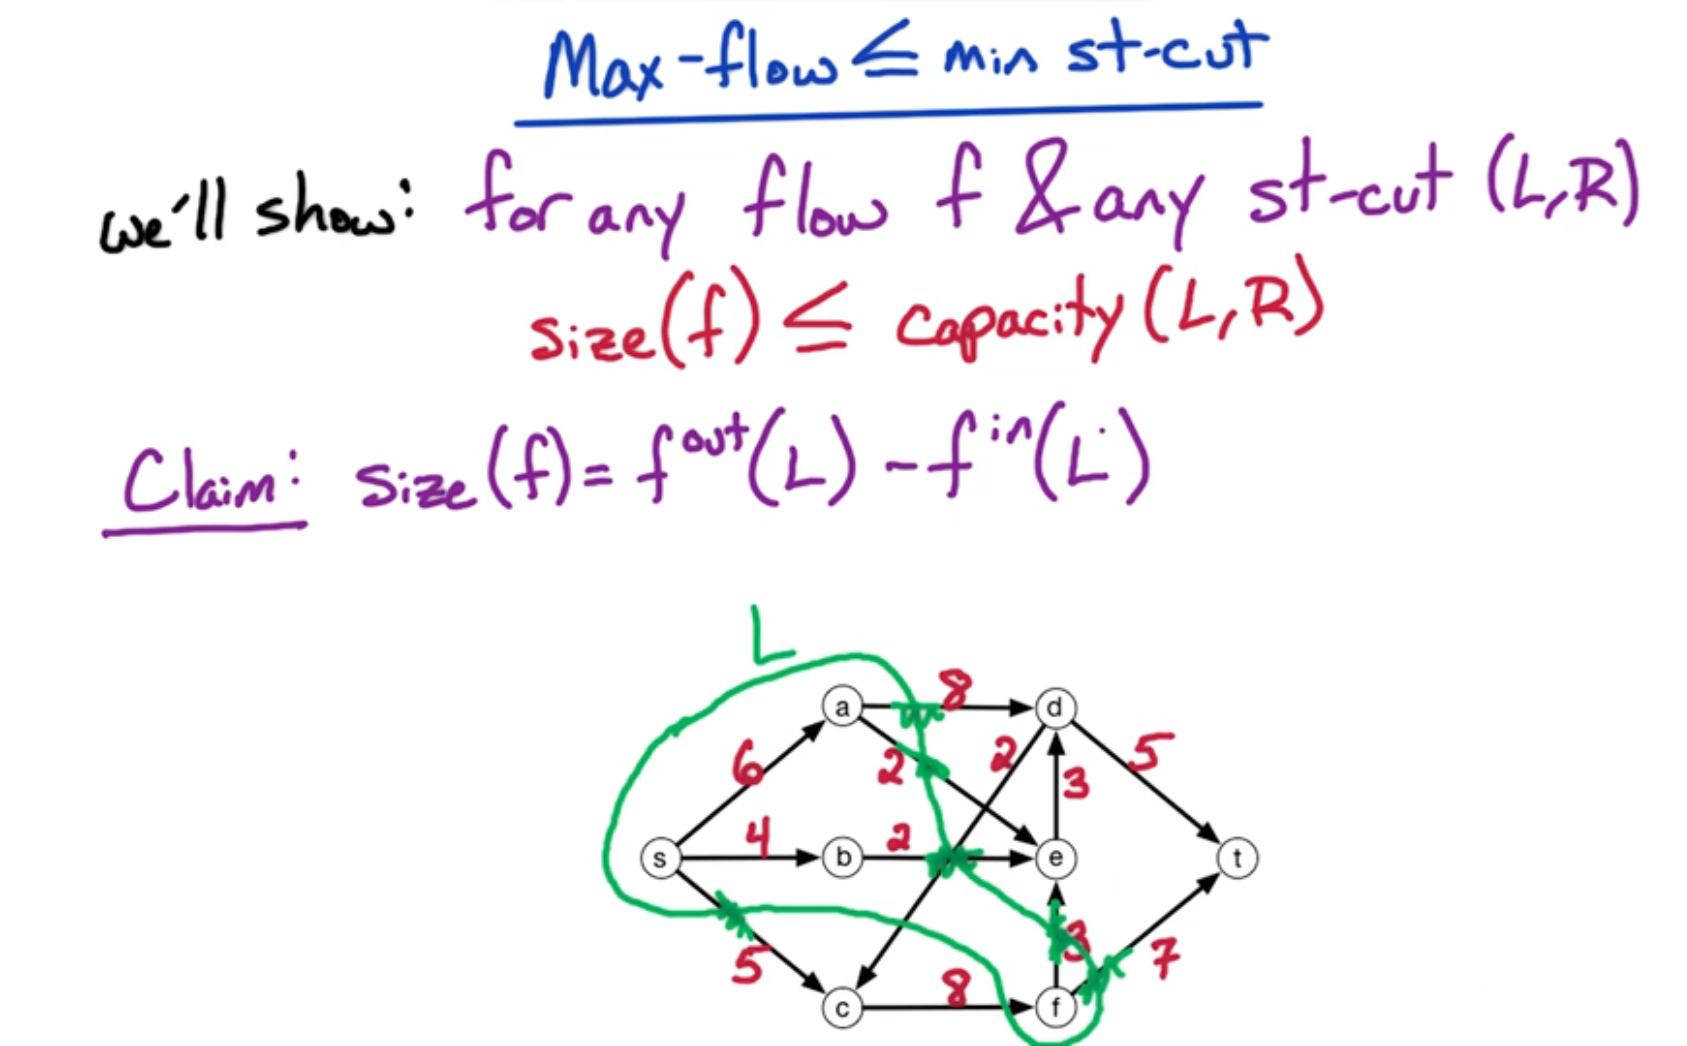 Max-flow ≤ min st-cut
we'll show: for any flow f & any st-cut (L,R)
size(f) ≤ capacity(L,R)
Claim: size(f) = f^out(L) - f^in(L)
L
a 8 d
6 2 2 3 5
s 4 b 2 e t
5 3 7
c 8 f